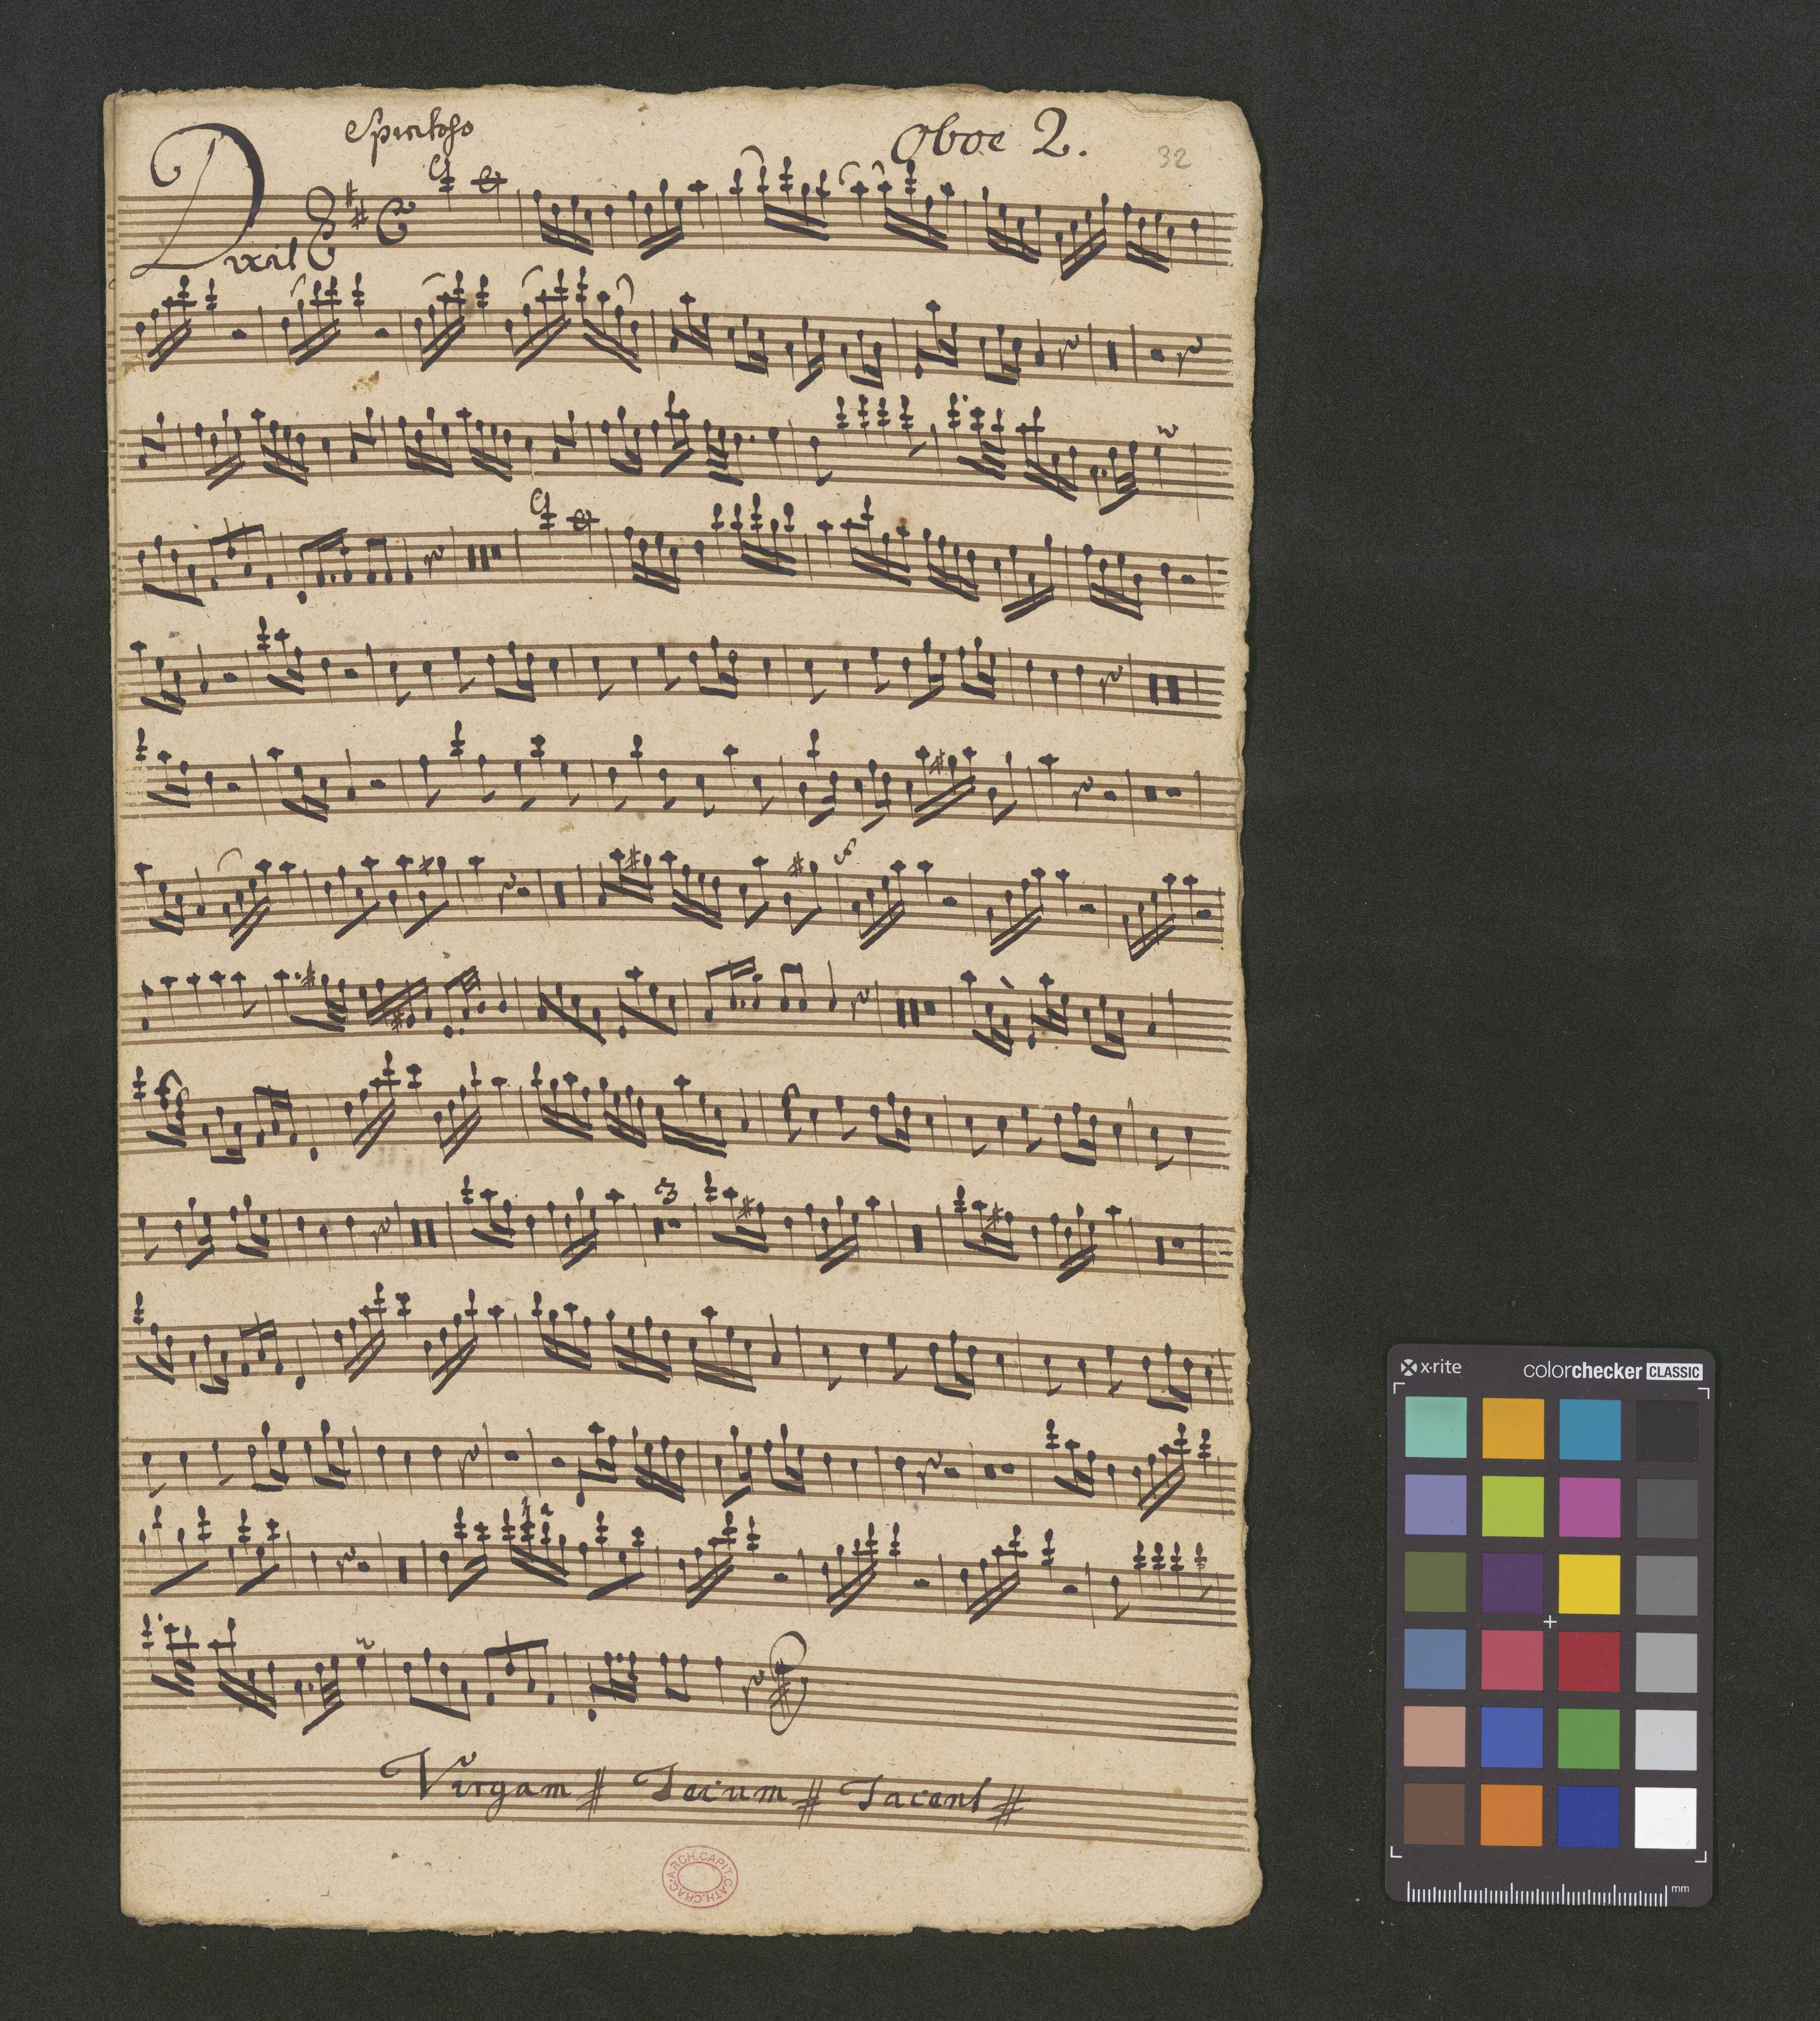 Spiritoso
Oboe 2.
32
Dixit
3
Virgam # Tecum # Tacent #
ARCH.CAPIT.CATH.CRAC.
x-rite
colorchecker CLASSIC
mm